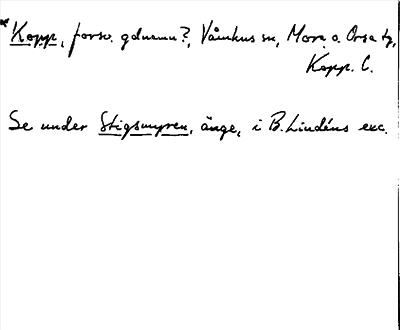 *Kopp, försv. gdnamn?, Våmhus sn, Mora o. Orsa tg,
Kopp. l.
Se under Stigsmyren, änge, i B. Lindéns exc.